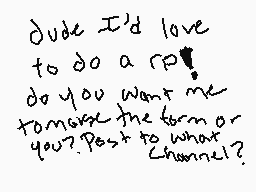 dude I'd love
to do a rp!
do you want me
to make the form or
you? Post to what
channel?